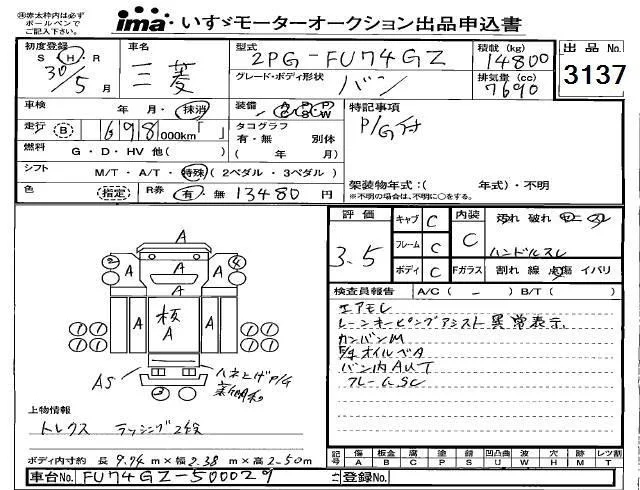 ※赤太枠内は必ず
ボールペンで
ご記入下さい。
ima いすゞモーターオークション出品申込書
初度登録 S H R 30/5 月
車名 三菱
型式 2PG-FU74GZ
グレード・ボディ形状 バン
積載 (kg) 14800
排気量 (cc) 7690
出品No. 3137
車検 年 月・抹消
装備 A P P C S W
特記事項
P/G付
走行 B 698,000km「 」
タコグラフ
有・無 別体
( 年 月)
燃料 G・D・HV 他( )
シフト M/T・A/T・特殊 (2ペダル・3ペダル)
架装物年式:( 年式)・不明
※不明の場合は、不明に○をする。
色 (指定) R券 有・無 13480 円
評価 3.5
キャブ C
フレーム C
ボディ C
内装 C
汚れ 破れ
ハンドルスレ
Fガラス 割れ 線 点傷 イバリ
検査員報告 A/C( - ) B/T( )
エアモレ
レーンキーピングアシスト異常表示
カンバンM
オイルベA
バン内AUT
フレームSC
A
② A A ④
A
A 板 A A
① ① ① ①
① ① ① ①
AS
③
ハネ上げP/G
上物情報
トレクス ラッシング2段
ボディ内寸約 長 9.74 m×幅 2.38 m×高 2.50 m
記号 傷 A 板金 B 腐 C 穴 P サビ S 凹凸曲 U 波 W 穴 H 欠 M 跡 T レツ割
車台No. FU74GZ-500029
登録No.